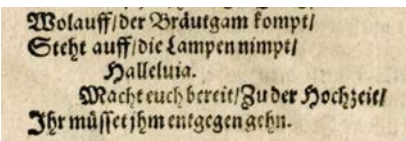 Wolauff/ der Bräutgam kompt/
Steht auff/ die Lampen nimpt/
Halleluia.
Macht euch bereit/ Zu der Hochzeit/
Ihr müsset jhm entgegen gehn.